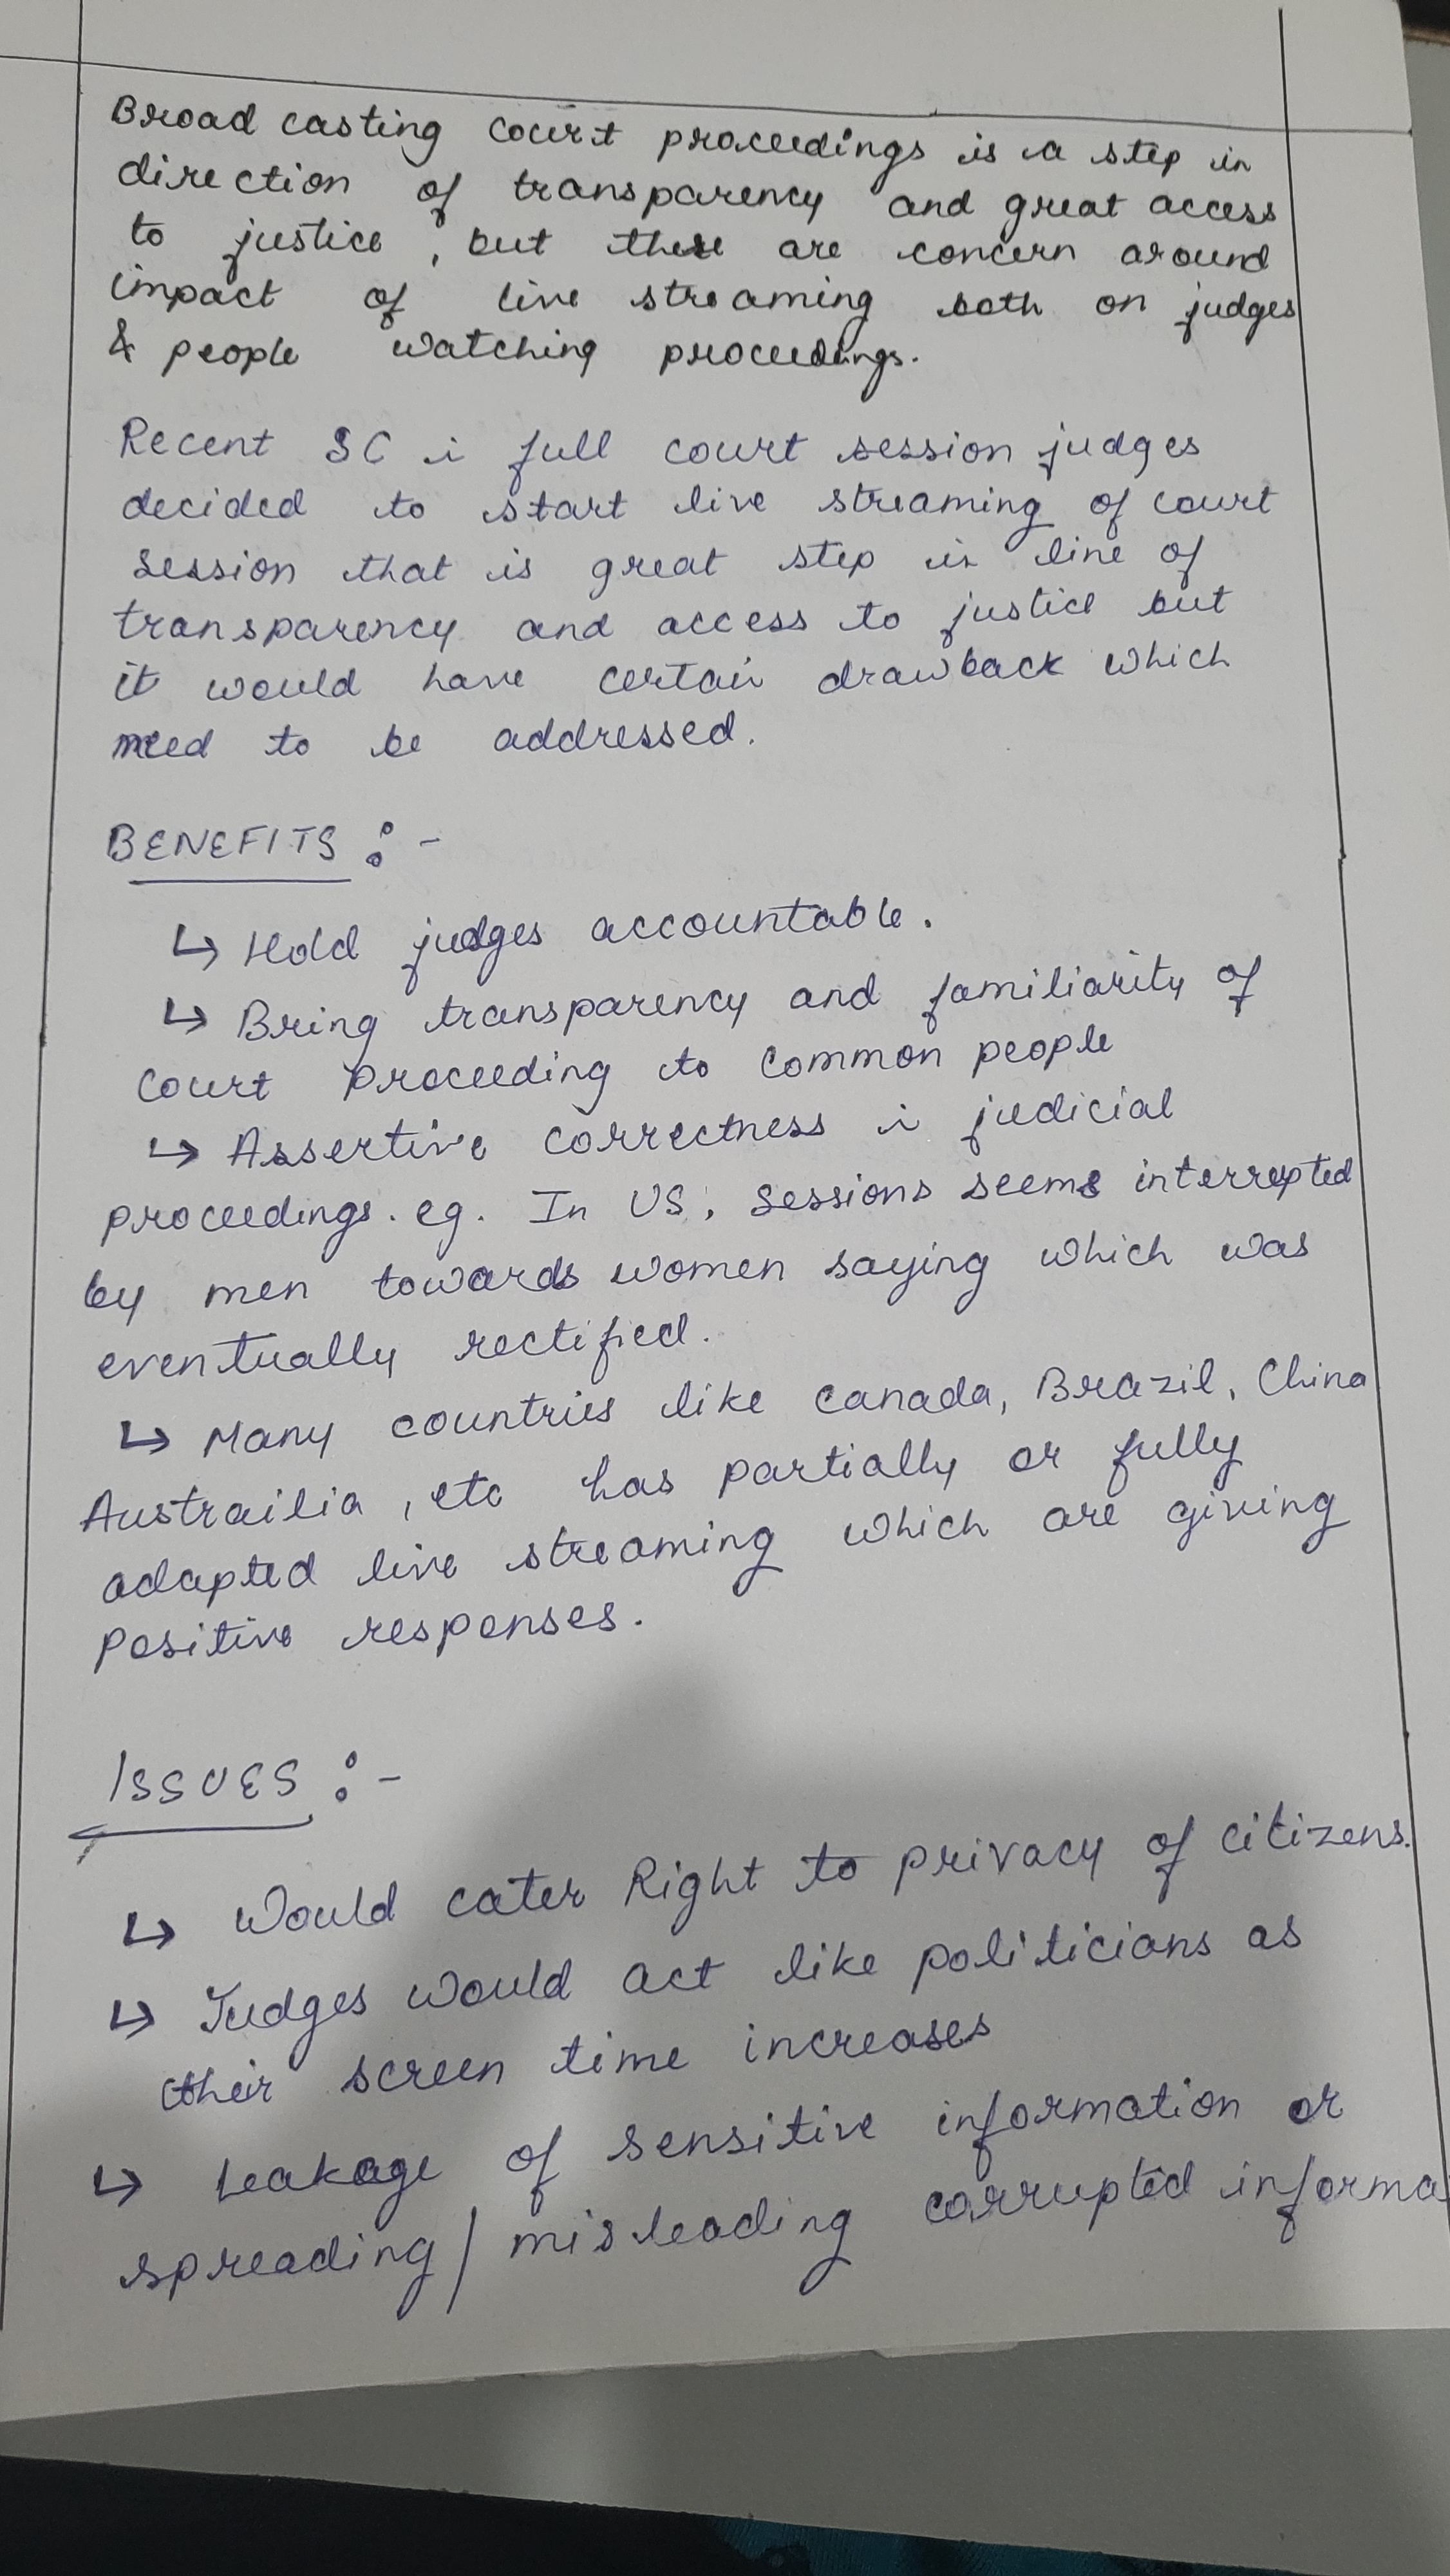 Broad casting court proceedings is a step in
direction of transparency and great access
to justice, but these are concern around
impact of live streaming both on judges
& people watching proceedings.
Recent SC i full court session judges
decided to start live streaming of court
session that is great step in line of
transparency and access to justice but
it would have certain drawback which
need to be addressed.
BENEFITS :-
↳ Hold judges accountable.
↳ Bring transparency and familiarity of
court proceeding to common people
↳ Assertive correctness i judicial
proceedings. eg. In US, sessions seems interrepted
by men towards women saying which was
eventually rectified.
↳ Many countries like Canada, Brazil, China
Austrailia, etc has partially or fully
adapted live streaming which are giving
positive responses.
ISSUES :-
↳ Would cater Right to privacy of citizens.
↳ Judges would act like politicians as
their screen time increases
↳ Leakage of sensitive information or
spreading / misleading corrupted informa